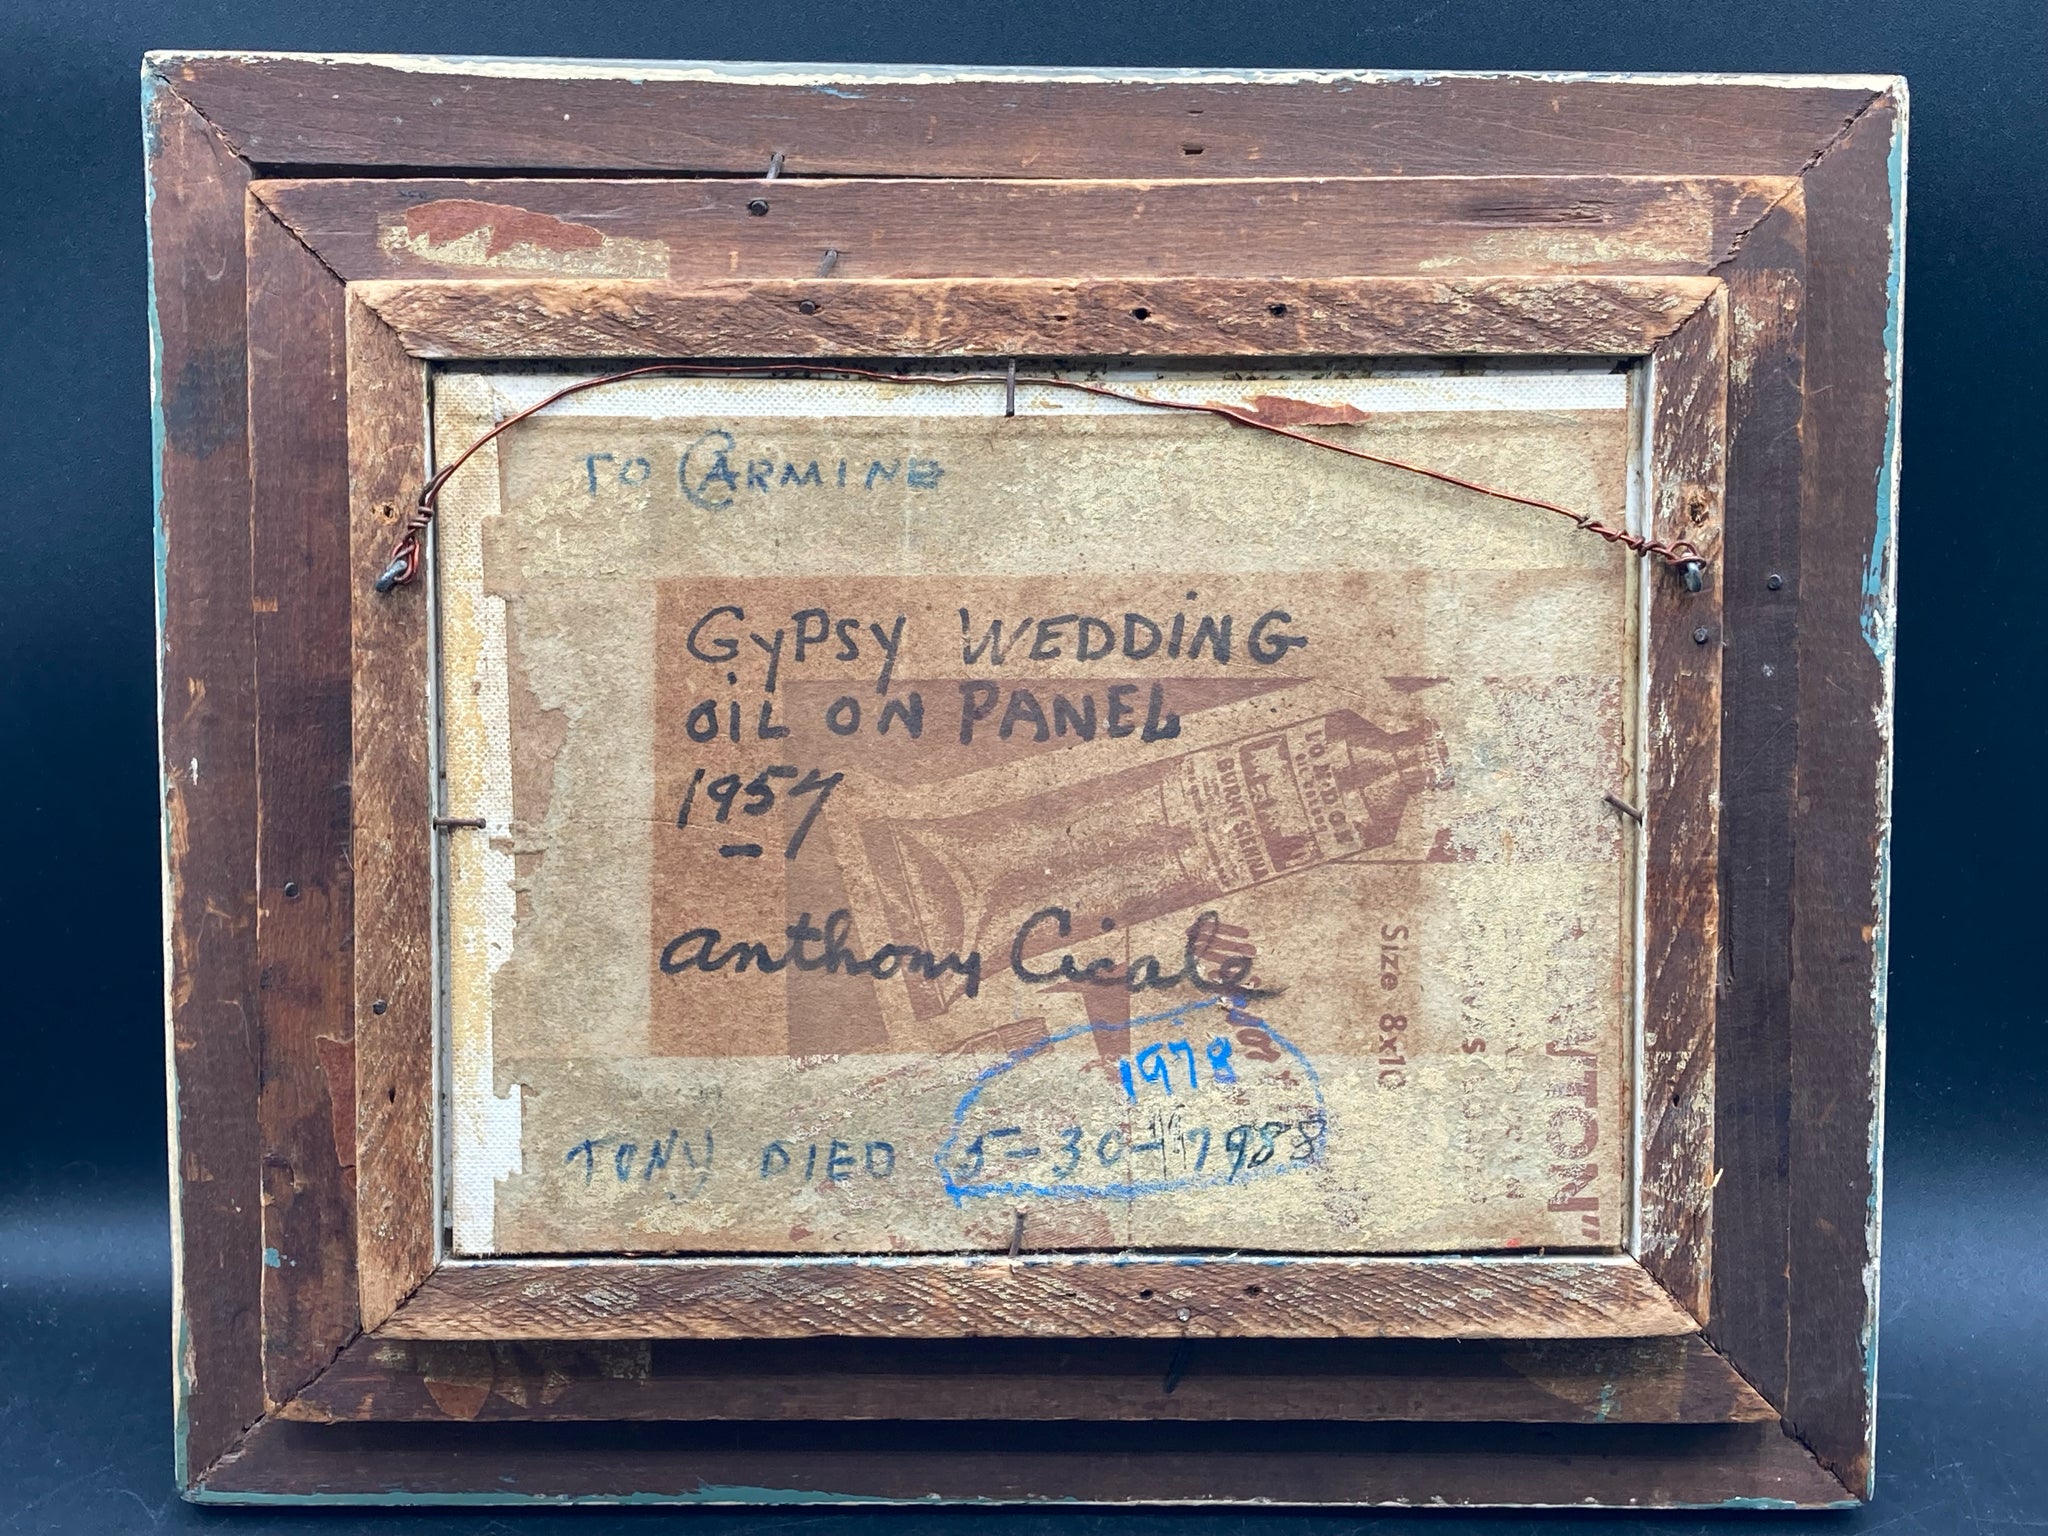 TO CARMINE
GYPSY WEDDING
OIL ON PANEL
1957
Anthony Cicale
1978
TONY DIED 5-30-1988
BURNT SIENNA
Size 8x10